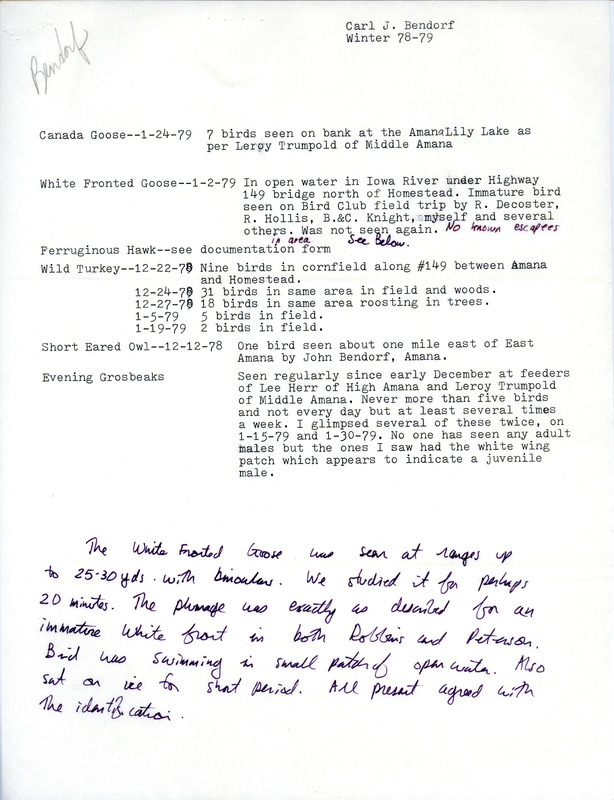 Bendorf
Carl J. Bendorf
Winter 78-79
Canada Goose--1-24-79 7 birds seen on bank at the AmanaLily Lake as
per Leroy Trumpold of Middle Amana
White Fronted Goose--1-2-79 In open water in Iowa River under Highway
149 bridge north of Homestead. Immature bird
seen on Bird Club field trip by R. Decoster,
R. Hollis, B.&C. Knight, myself and several
others. Was not seen again. No known escapees
in area See Below.
Ferruginous Hawk--see documentation form
Wild Turkey--12-22-78 Nine birds in cornfield along #149 between Amana
and Homestead.
12-24-78 31 birds in same area in field and woods.
12-27-78 18 birds in same area roosting in trees.
1-5-79 5 birds in field.
1-19-79 2 birds in field.
Short Eared Owl--12-12-78 One bird seen about one mile east of East
Amana by John Bendorf, Amana.
Evening Grosbeaks Seen regularly since early December at feeders
of Lee Herr of High Amana and Leroy Trumpold
of Middle Amana. Never more than five birds
and not every day but at least several times
a week. I glimpsed several of these twice, on
1-15-79 and 1-30-79. No one has seen any adult
males but the ones I saw had the white wing
patch which appears to indicate a juvenile
male.
The White Fronted Goose was seen at ranges up
to 25-30 yds. with binoculars. We studied it for perhaps
20 minutes. The plumage was exactly as described for an
immature White front in both Robbins and Peterson.
Bird was swimming in small patch of open water. Also
sat on ice for short period. All present agreed with
the identification.